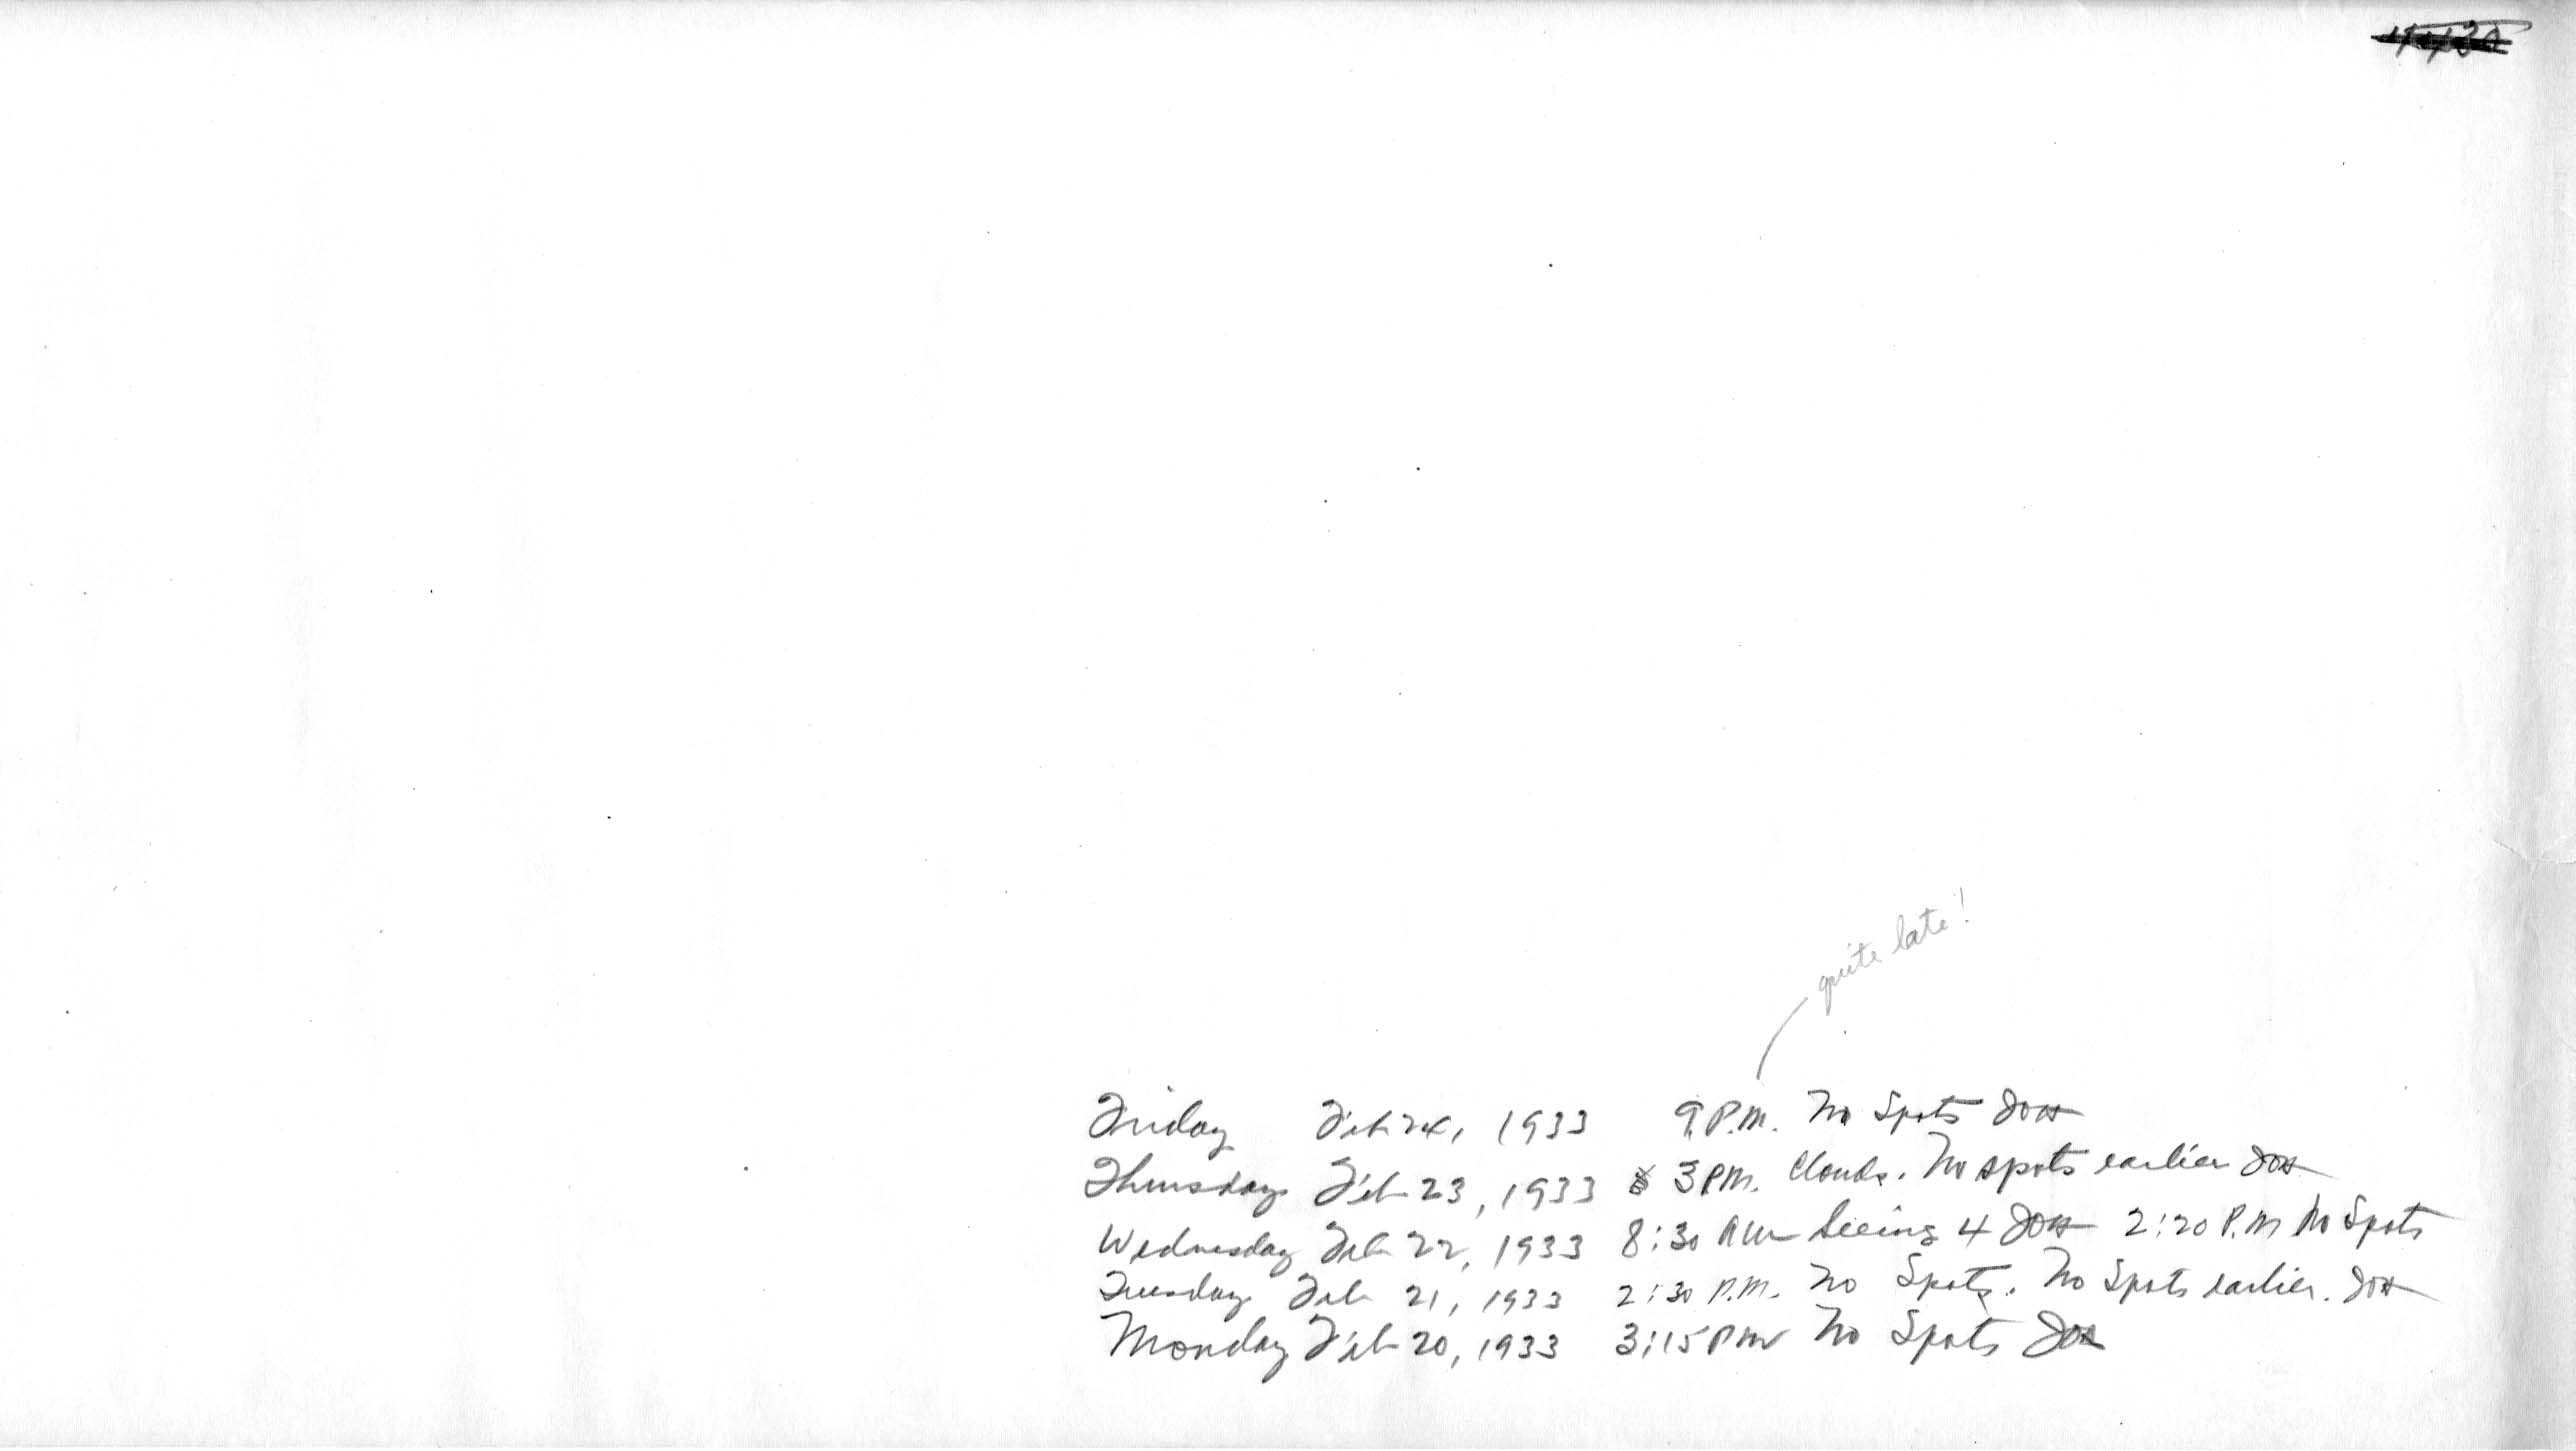 quite late!
Friday Feb 24, 1933 9 P.M. No Spots JOH
Thursday Feb 23, 1933 3 PM. Clouds. No spots earlier JOH
Wednesday Feb 22, 1933 8:30 AM Seeing 4 JOH 2:20 P.M No Spots
Tuesday Feb 21, 1933 2:30 P.M. No Spots. No Spots earlier. JOH
Monday Feb 20, 1933 3:15 PM No Spots JOH